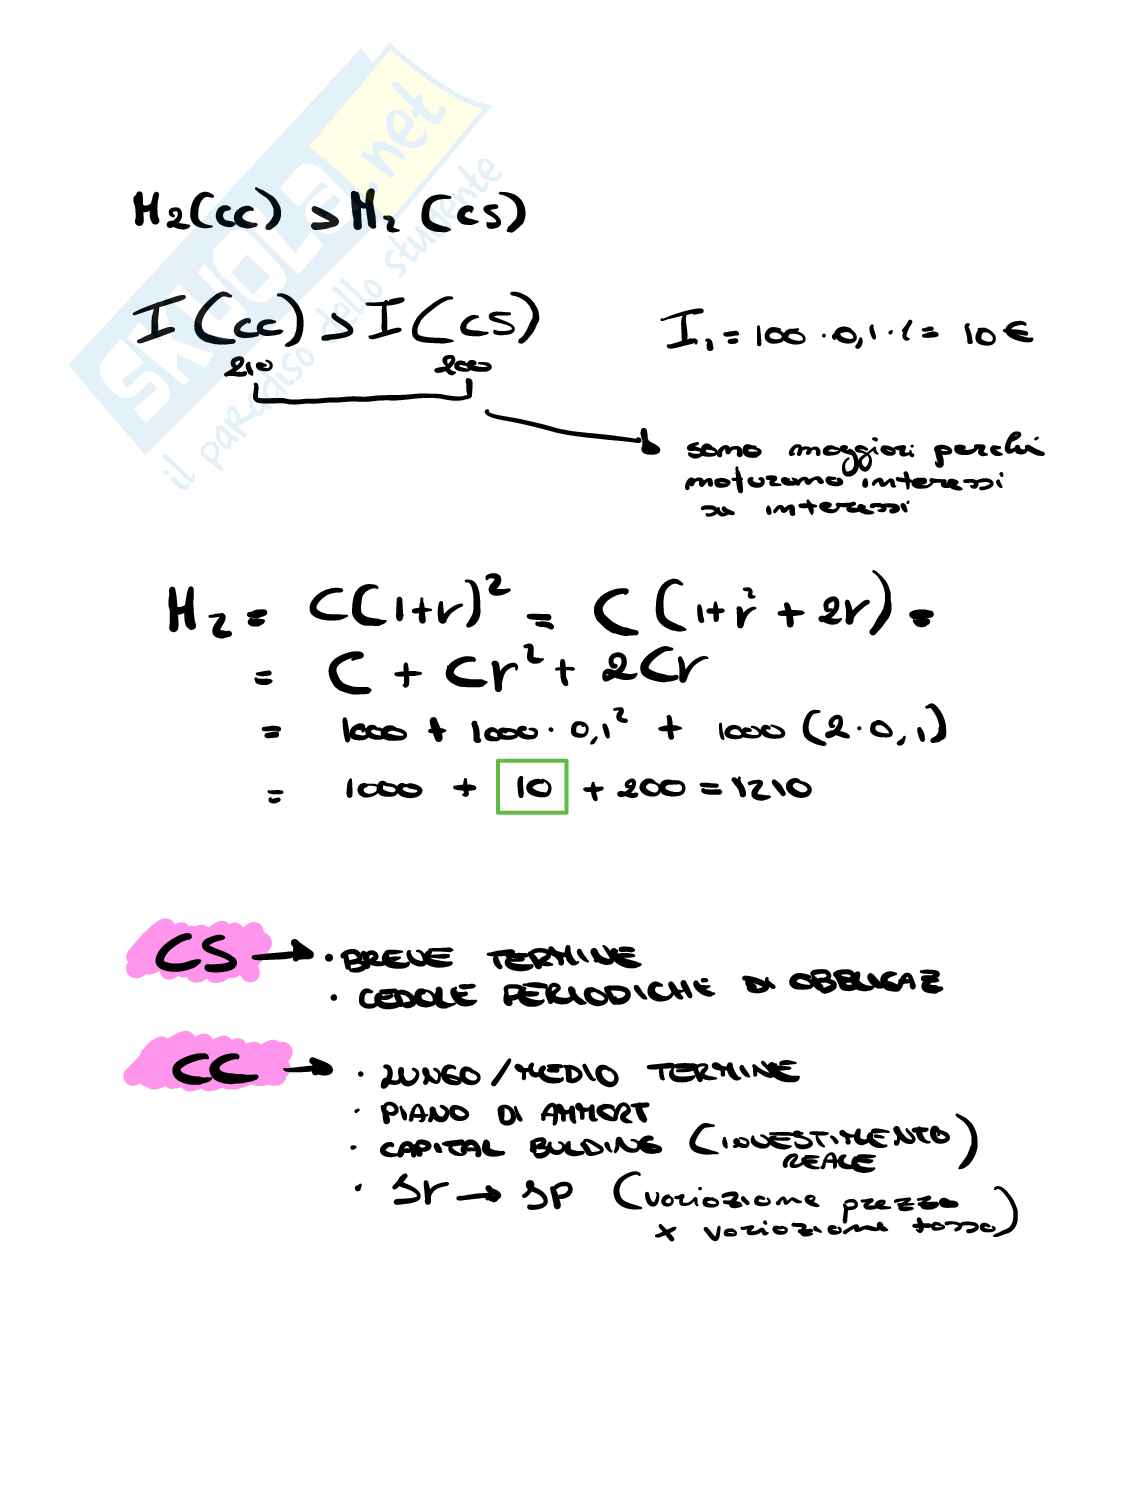 SKUOLA.net
il paradiso dello studente
M₂(cc) > M₂(cs)
I(cc) > I(cs)
210 2000
I₁ = 100 · 0,1 · 1 = 10€
sono maggiori perchè
maturano interessi
su interessi
M₂ = C(1+r)² = C(1+r² + 2r) =
= C + Cr² + 2Cr
= 1000 + 1000 · 0,1² + 1000 (2 · 0,1)
= 1000 + 10 + 200 = 1210
CS → · BREVE TERMINE
· CEDOLE PERIODICHE DI OBBLIGAZ
CC → · LUNGO/MEDIO TERMINE
· PIANO DI AMMORT
· CAPITAL BULDING (INVESTIMENTO
REALE)
· Δr → Δp (variazione prezzo
x variazione tasso)